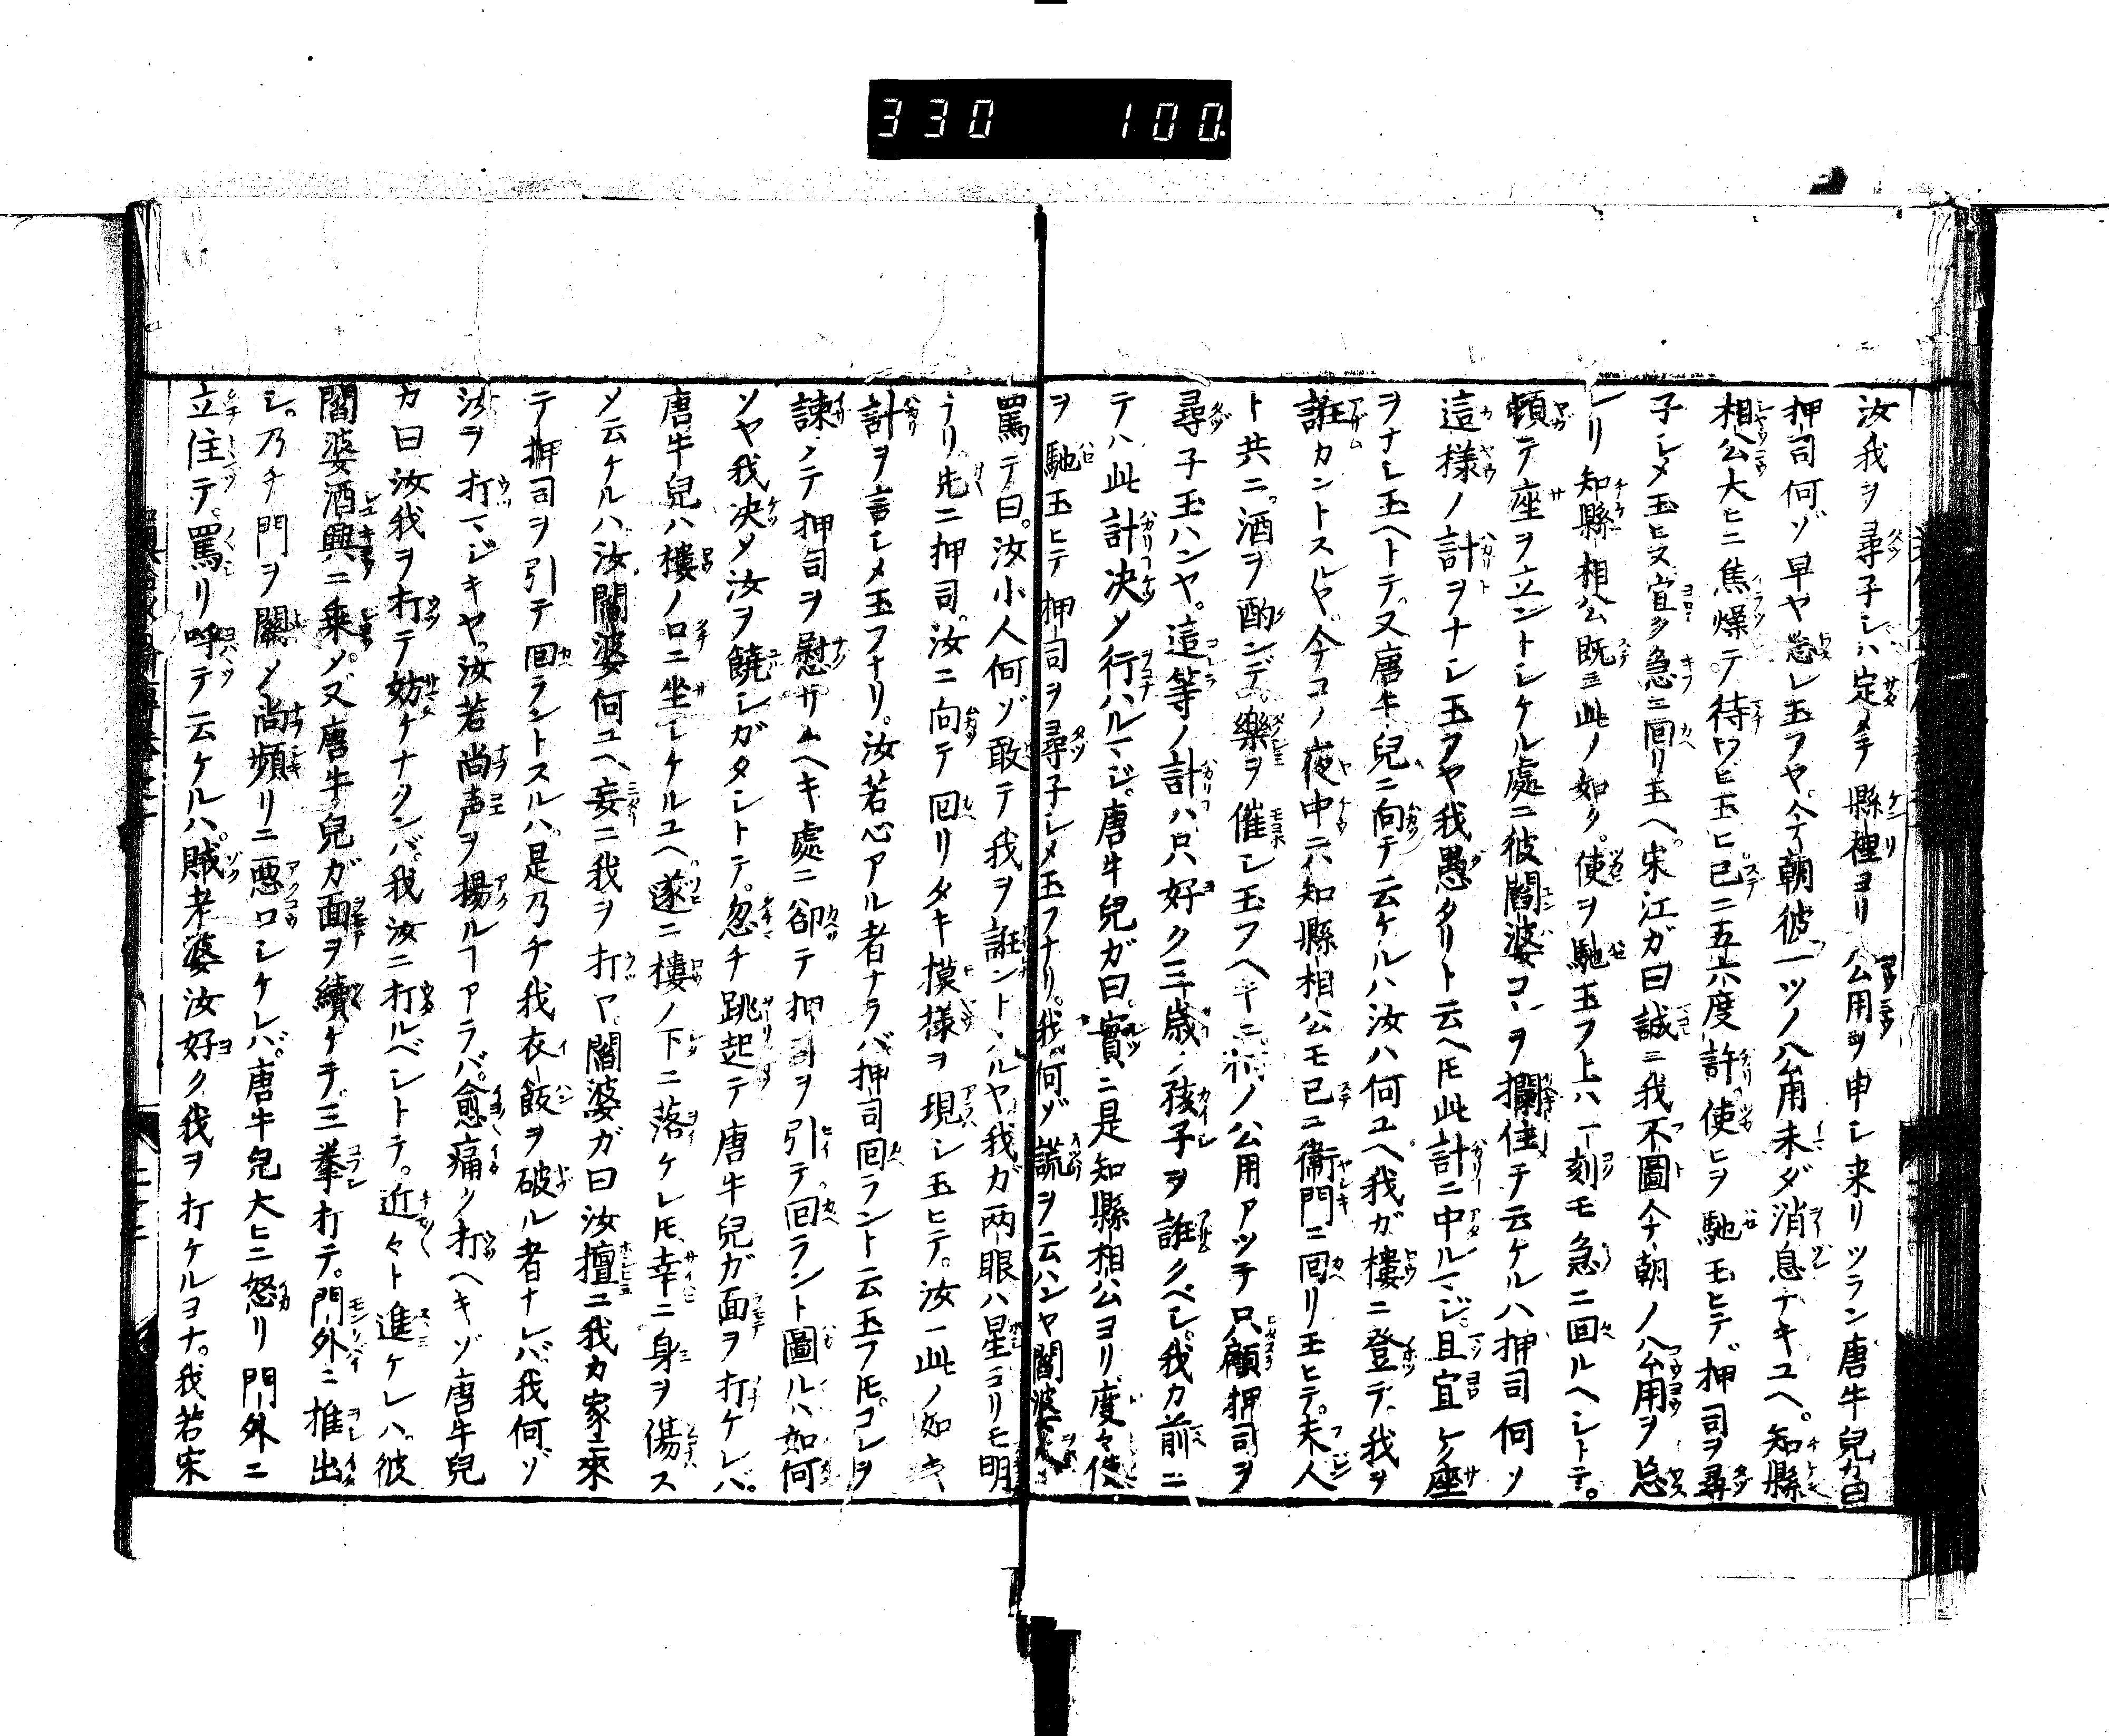 330 100.
汝我ヲ尋子シハ定メテ縣裡ヨリ公用ヲ申シ来リツラン唐牛兒カ曰
押司何ゾ早ヤ忘レ玉フヤ今朝彼一ツノ公用未ダ消息ナキユヘ。知縣
相公大ヒニ焦燥テ待ワヒ玉ヒ已ニ五六度許使ヒヲ馳玉ヒテ。押司ヲ尋
子シメ玉ヒヌ宜ク急ニ回リ玉ヘ。宋江ガ曰誠ニ我不圖今朝ノ公用ヲ忘
レリ知縣相公既ニ此ノ如ク。使ヲ馳玉フ上ハ一刻モ急ニ回ルヘシトテ。
頓テ座ヲ立ントシケル處ニ彼閻婆コレヲ攔住テ云ケルハ押司何ソ
這様ノ計ヲナシ玉フヤ我愚タリト云ヘ𪜈此計ニ中ルマジ且宜ク座
ヲナシ玉ヘトテ。又唐牛兒ニ向テ云ケルハ汝ハ何ユヘ我ガ樓ニ登テ。我ヲ
誑カントスルヤ今コノ夜中ニハ知縣相公モ已ニ衙門ニ回リ玉ヒテ。夫人
ト共ニ。酒ヲ酌ンデ。樂ヲ催シ玉フヘキニ何ノ公用アツテ只顧押司ヲ
尋子玉ハンヤ。這等ノ計ハ只好ク三歳ノ孩子ヲ誑クベシ。我カ前ニ
テハ此計决メ行ハルマジ。唐牛兒ガ曰。實ニ是知縣相公ヨリ度々使
ヲ馳玉ヒテ押司ヲ尋子シメ玉フナリ。我何ゾ謊ヲ云ハンヤ閻婆大ニ
罵テ曰。汝小人何ゾ敢テ我ヲ誑ントハルヤ我ガ両眼ハ星ヨリモ明
ラリ。先ニ押司。汝ニ向テ回リタキ摸様ヲ現シ玉ヒテ。汝ニ此ノ如キ
計ヲ言シメ玉フナリ。汝若心アル者ナラバ押司回ラント云玉フ𪜈。コレヲ
諫メテ押司ヲ慰サムヘキ處ニ卻テ押司ヲ引テ。回ラント圖ルハ如何
ソヤ我决メ汝ヲ饒シガタシトテ。忽チ跳起テ唐牛兒ガ面ヲ打ケレバ。
唐牛兒ハ樓ノ口ニ坐シケルユヘ遂ニ樓ノ下ニ落ケレ𪜈幸ニ身ヲ傷ス
メ云ケルハ汝閻婆何ユヘ妄ニ我ヲ打ヤ。閻婆ガ曰汝擅ニ我カ家ニ來
テ押司ヲ引テ回ラントスルハ。是乃チ我衣飯ヲ破ル者ナレバ我何ゾ
汝ヲ打マジキヤ。汝若尚声ヲ揚ルヿアラバ。愈痛ク打ヘキゾ唐牛兒
カ曰汝我ヲ打テ妨ケナクンバ我汝ニ打ルベシトテ。近々ト進ケレハ。彼
閻婆酒興ニ乗メ。又唐牛兒ガ面ヲ續ケテ。三拳打テ。門外ニ推出
シ。乃チ門ヲ關メ尚頻リニ悪口シケレバ。唐牛兒大ヒニ怒リ門外ニ
立住テ。罵リ呼テ云ケルハ。賊老婆汝好ク我ヲ打ケルヨナ。我若宋